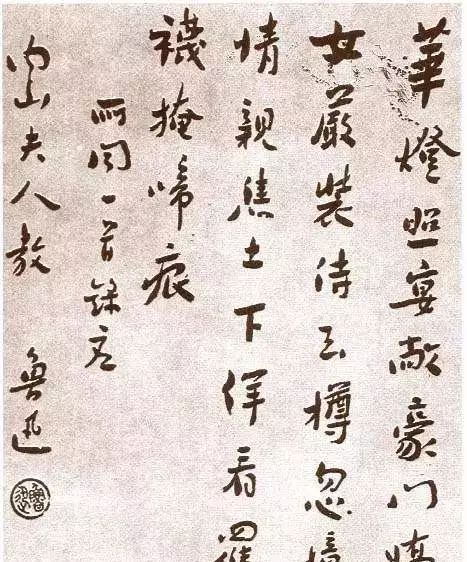 華燈照宴敞豪門嬌
女嚴裝侍玉樽忽憶
情親焦土下佯看羅
襪掩啼痕
所聞一首錄應
内山夫人教
魯迅
魯迅